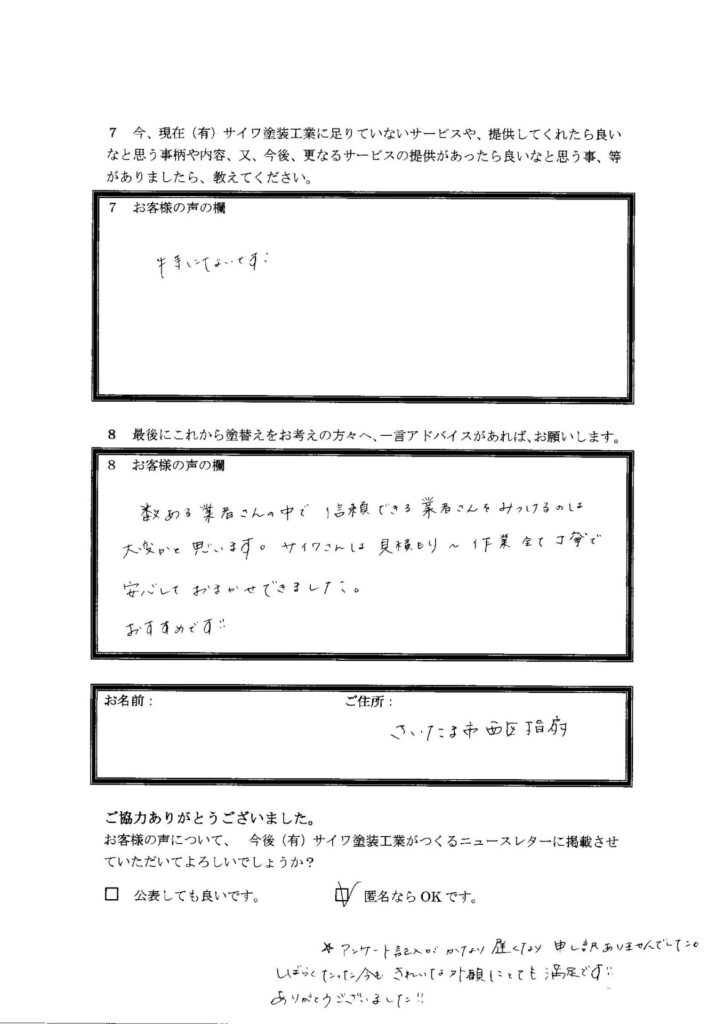 7 今、現在（有）サイワ塗装工業に足りていないサービスや、提供してくれたら良い
なと思う事柄や内容、又、今後、更なるサービスの提供があったら良いなと思う事、等
がありましたら、教えてください。
7 お客様の声の欄
特にないです!
8 最後にこれから塗替えをお考えの方々へ、一言アドバイスがあれば、お願いします。
8 お客様の声の欄
数ある業者さんの中で 信頼できる業者さんをみつけるのは
大変かと思います。サイワさんは見積もり～作業全て丁寧で
安心しておまかせできました。
おすすめです!!
お名前： ご住所：
さいたま市西区指扇
ご協力ありがとうございました。
お客様の声について、 今後（有）サイワ塗装工業がつくるニュースレターに掲載させ
ていただいてよろしいでしょうか？
□ 公表しても良いです。 ☑ 匿名なら OK です。
＊アンケート記入がかなり遅くなり 申し訳ありませんでした。
しばらくたった今も きれいな外観にとても満足です!!
ありがとうございました!!